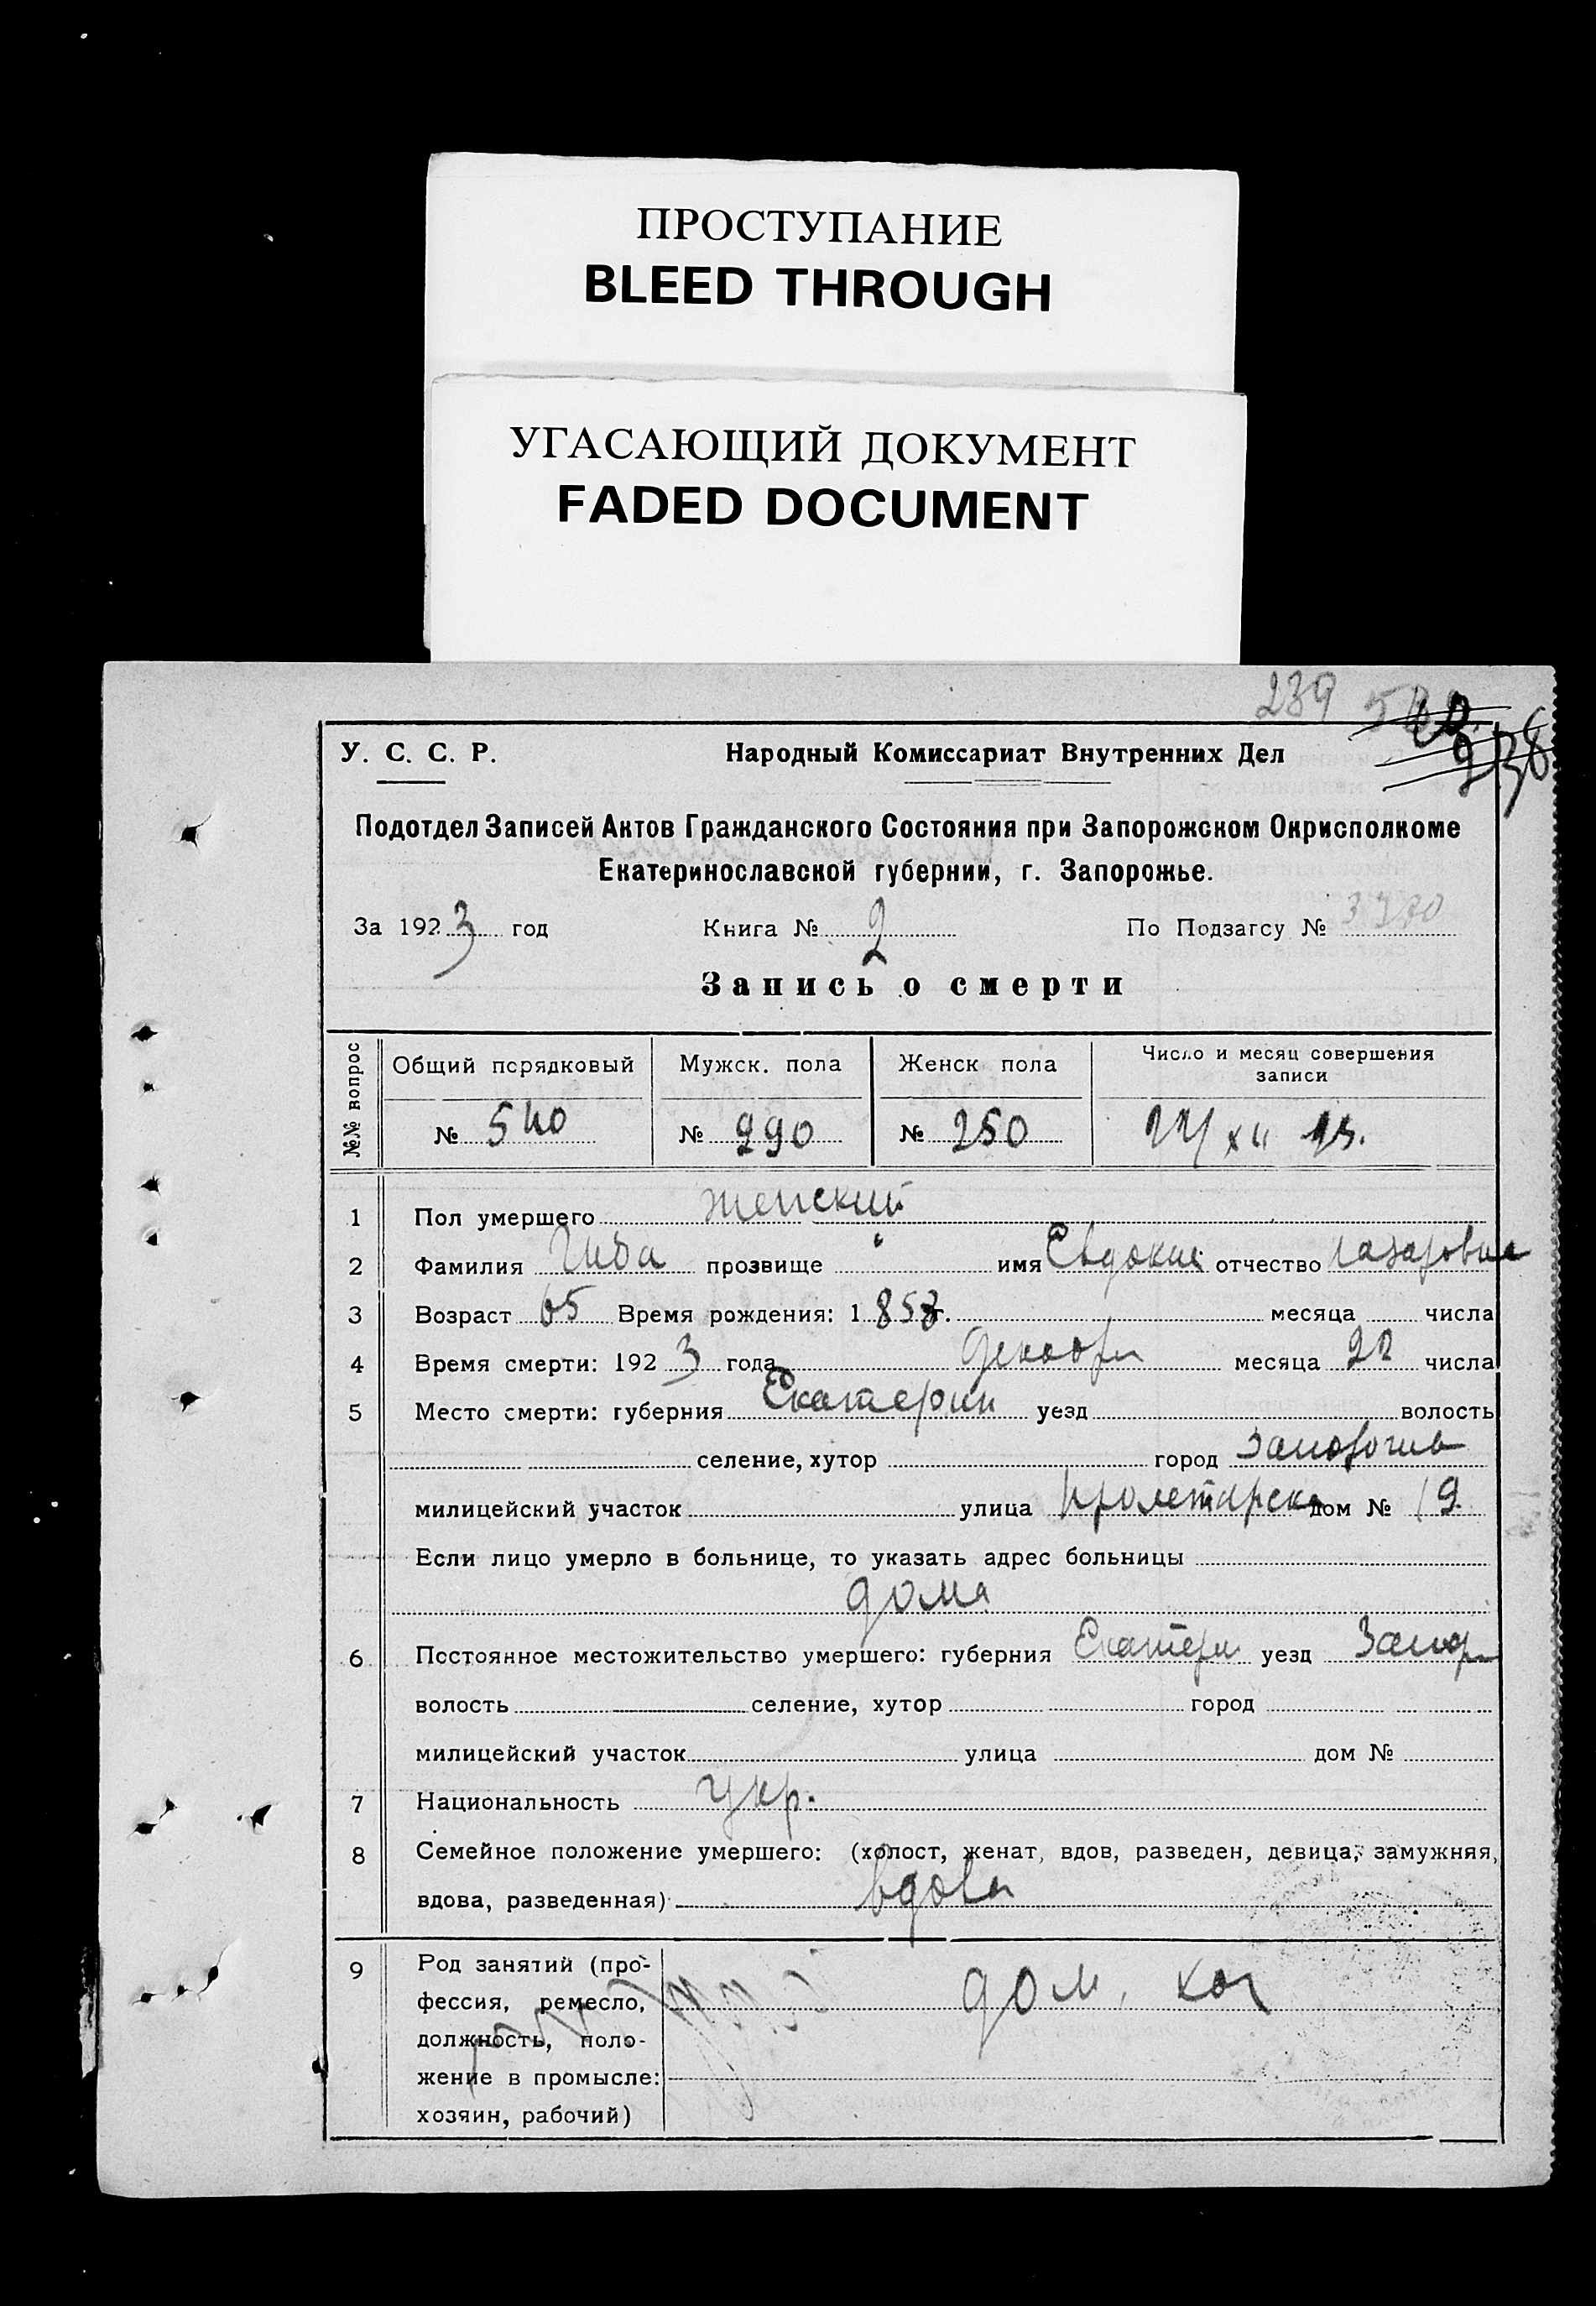 ПРОСТУПАНИЕ
BLEED THROUGH
УГАСАЮЩИЙ ДОКУМЕНТ
FADED DOCUMENT
239
У. С. С. Р. Народный Комиссариат Внутренних Дел
Подотдел Записей Актов Гражданского Состояния при Запорожском Окрисполкоме
Екатеринославской губернии, г. Запорожье.
За 1923 год Книга № 2 По Подзагсу №
Запись о смерти
№№ вопрос Общий порядковый Мужск. пола Женск пола Число и месяц совершения
записи
№ 540 № 290 № 250
1 Пол умершего женский
2 Фамилия прозвище " имя Евдокия отчество Лазаровна
3 Возраст 65 Время рождения: 1858 г. месяца числа
4 Время смерти: 1923 года декабря месяца 22 числа
5 Место смерти: губерния Екатерин уезд волость
селение, хутор город Запорожье
милицейский участок улица Пролетарска дом № 19
Если лицо умерло в больнице, то указать адрес больницы
дома
6 Постоянное местожительство умершего: губерния Екатери уезд Запор
волость селение, хутор город
милицейский участок улица дом №
7 Национальность укр.
8 Семейное положение умершего: (холост, женат, вдов, разведен, девица, замужняя,
вдова, разведенная) вдова
9 Род занятий (про-
фессия, ремесло, дом.
должность, поло-
жение в промысле:
хозяин, рабочий)